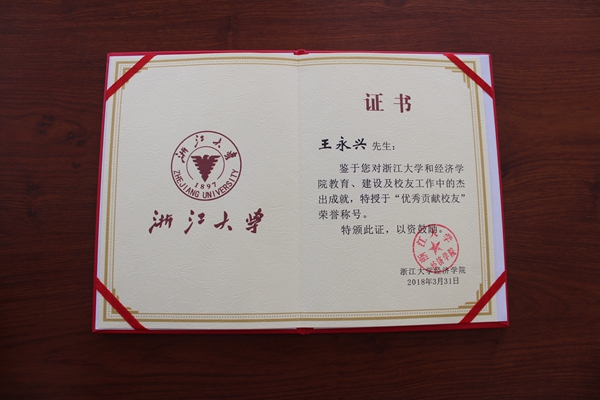 浙江大学
ZHEJIANG UNIVERSITY
1897
浙江大学
证书
王永兴 先生：
鉴于您对浙江大学和经济学
院教育、建设及校友工作中的杰
出成就，特授于“优秀贡献校友”
荣誉称号。
特颁此证，以资鼓励。
浙江大学
经济学院
浙江大学经济学院
2018年3月31日